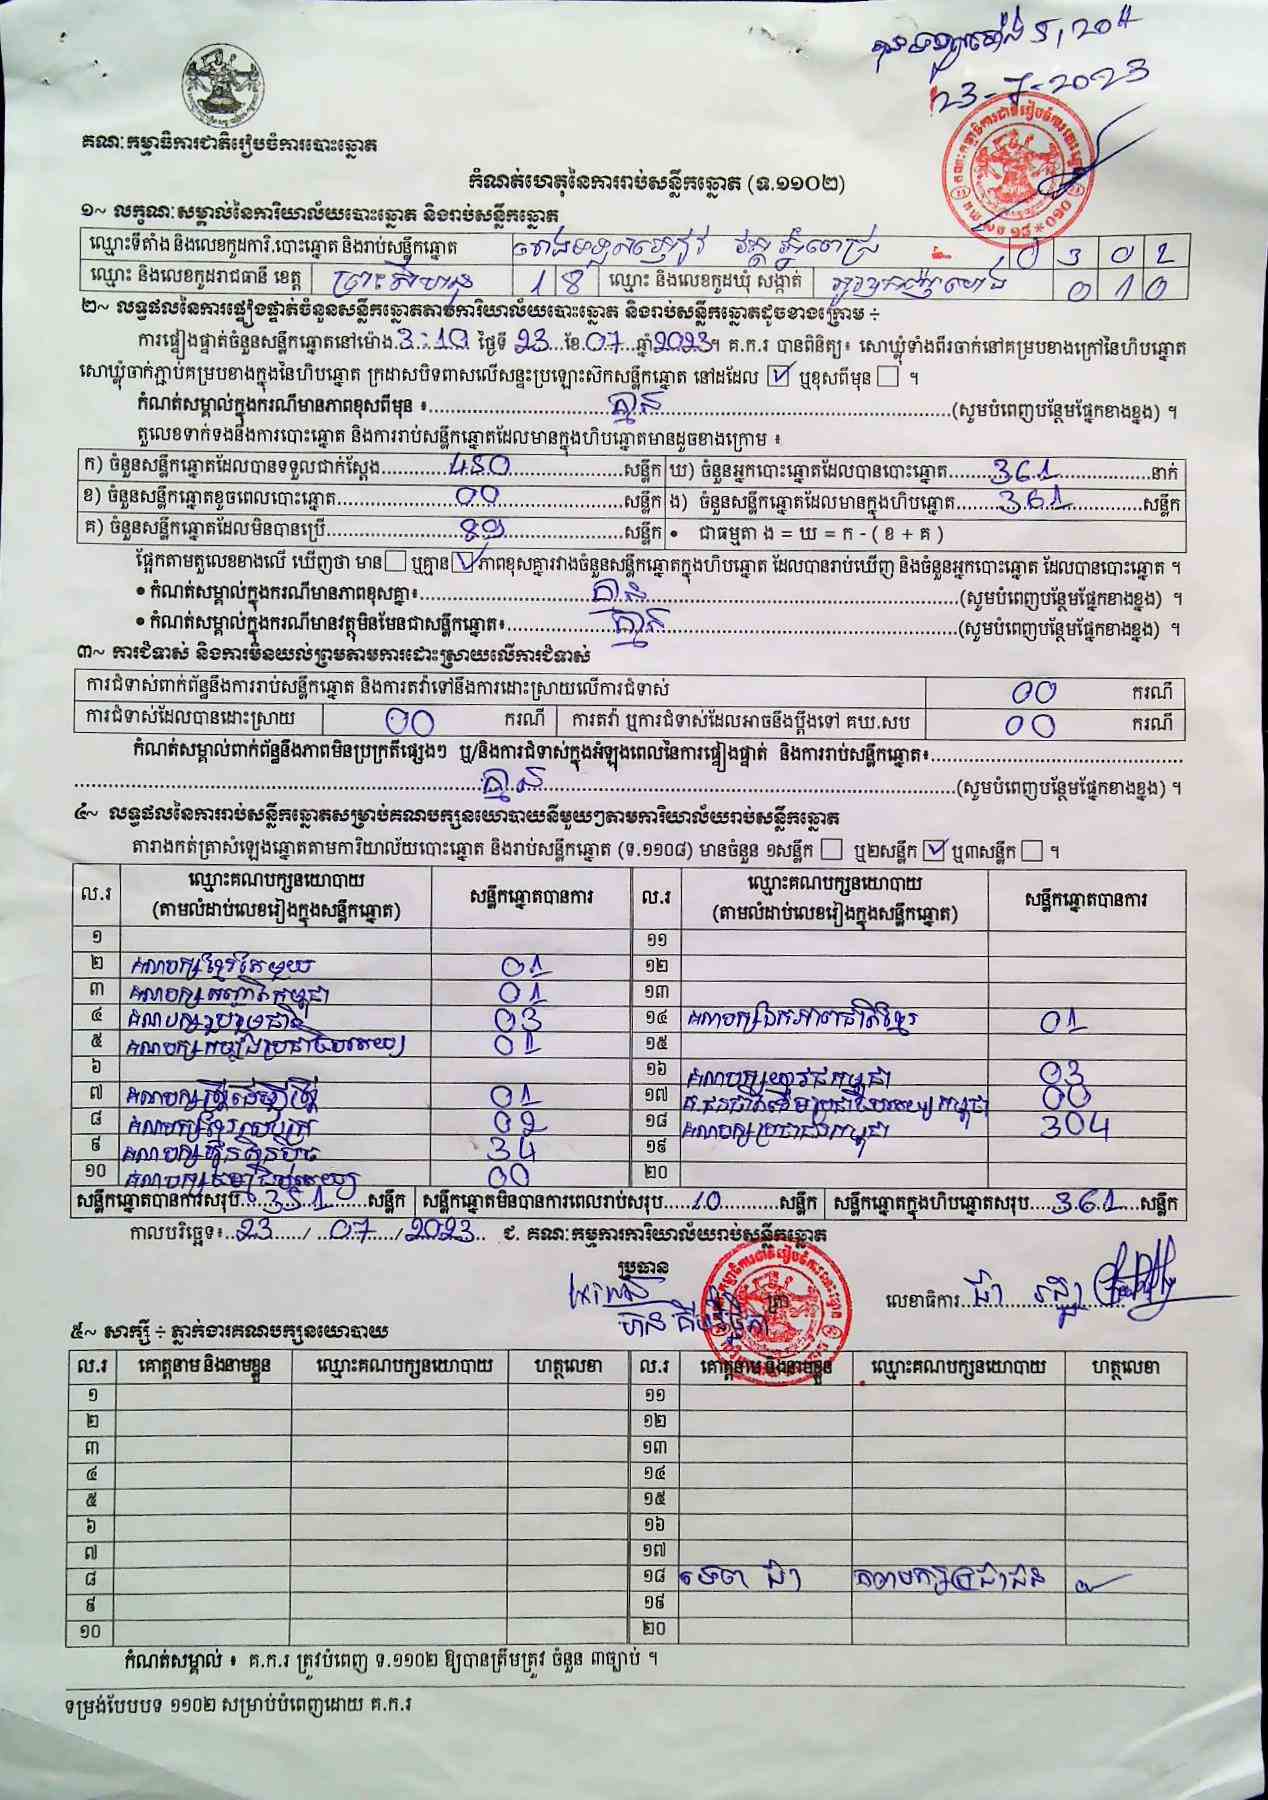 5,20
23-7-2023
គណៈកម្មាធិការជាតិរៀបចំការបោះឆ្នោត
កំណត់ហេតុនៃការរាប់សន្លឹកឆ្នោត (ទ.១១០២)
១~ លក្ខណៈសម្គាល់នៃការិយាល័យបោះឆ្នោត និងរាប់សន្លឹកឆ្នោត
ឈ្មោះទីតាំង និងលេខកូដការិ.បោះឆ្នោត និងរាប់សន្លឹកឆ្នោត 0 3 0 2
ឈ្មោះ និងលេខកូដរាជធានី ខេត្ត ព្រះសីហនុ 1 8 ឈ្មោះ និងលេខកូដឃុំ សង្កាត់ 0 1 0
២~ លទ្ធផលនៃការផ្ទៀងផ្ទាត់ចំនួនសន្លឹកឆ្នោតតាមការិយាល័យបោះឆ្នោត និងរាប់សន្លឹកឆ្នោតដូចខាងក្រោម ÷
ការផ្ទៀងផ្ទាត់ចំនួនសន្លឹកឆ្នោតនៅម៉ោង 3:10 ថ្ងៃទី 23 ខែ 07 ឆ្នាំ 2023។ គ.ក.រ បានពិនិត្យ៖ សោឃ្លុំទាំងពីរចាក់នៅគម្របខាងក្រៅនៃហិបឆ្នោត
សោឃ្លុំចាក់ភ្ជាប់គម្របខាងក្នុងនៃហិបឆ្នោត ក្រដាសបិទពាសលើសន្ទះប្រឡោះស៊កសន្លឹកឆ្នោត នៅដដែល ☑ ឬខុសពីមុន ☐ ។
កំណត់សម្គាល់ក្នុងករណីមានភាពខុសពីមុន ៖ គ្មាន (សូមបំពេញបន្ថែមផ្នែកខាងខ្នង) ។
តួលេខទាក់ទងនឹងការបោះឆ្នោត និងការរាប់សន្លឹកឆ្នោតដែលមានក្នុងហិបឆ្នោតមានដូចខាងក្រោម ៖
ក) ចំនួនសន្លឹកឆ្នោតដែលបានទទួលជាក់ស្តែង 450 សន្លឹក ឃ) ចំនួនអ្នកបោះឆ្នោតដែលបានបោះឆ្នោត 361 នាក់
ខ) ចំនួនសន្លឹកឆ្នោតខូចពេលបោះឆ្នោត 00 សន្លឹក ង) ចំនួនសន្លឹកឆ្នោតដែលមានក្នុងហិបឆ្នោត 361 សន្លឹក
គ) ចំនួនសន្លឹកឆ្នោតដែលមិនបានប្រើ 89 សន្លឹក • ជាធម្មតា ង = ឃ = ក - ( ខ + គ )
ផ្អែកតាមតួលេខខាងលើ ឃើញថា មាន ☐ ឬគ្មាន ☑ ភាពខុសគ្នារវាងចំនួនសន្លឹកឆ្នោតក្នុងហិបឆ្នោត ដែលបានរាប់ឃើញ និងចំនួនអ្នកបោះឆ្នោត ដែលបានបោះឆ្នោត ។
• កំណត់សម្គាល់ក្នុងករណីមានភាពខុសគ្នា៖ គ្មាន (សូមបំពេញបន្ថែមផ្នែកខាងខ្នង) ។
• កំណត់សម្គាល់ក្នុងករណីមានវត្ថុមិនមែនជាសន្លឹកឆ្នោត៖ គ្មាន (សូមបំពេញបន្ថែមផ្នែកខាងខ្នង) ។
៣~ ការជំទាស់ និងការមិនយល់ព្រមតាមការដោះស្រាយលើការជំទាស់
ការជំទាស់ពាក់ព័ន្ធនឹងការរាប់សន្លឹកឆ្នោត និងការតវ៉ាទៅនឹងការដោះស្រាយលើការជំទាស់ 00 ករណី
ការជំទាស់ដែលបានដោះស្រាយ 00 ករណី ការតវ៉ា ឬការជំទាស់ដែលអាចនឹងប្តឹងទៅ គឃ.សប 00 ករណី
កំណត់សម្គាល់ពាក់ព័ន្ធនឹងភាពមិនប្រក្រតីផ្សេងៗ ឬ/និងការជំទាស់ក្នុងអំឡុងពេលនៃការផ្ទៀងផ្ទាត់ និងការរាប់សន្លឹកឆ្នោត៖
គ្មាន (សូមបំពេញបន្ថែមផ្នែកខាងខ្នង) ។
៤~ លទ្ធផលនៃការរាប់សន្លឹកឆ្នោតសម្រាប់គណបក្សនយោបាយនីមួយៗតាមការិយាល័យរាប់សន្លឹកឆ្នោត
តារាងកត់ត្រាសំឡេងឆ្នោតតាមការិយាល័យបោះឆ្នោត និងរាប់សន្លឹកឆ្នោត (ទ.១១០៨) មានចំនួន ១សន្លឹក ☐ ឬ២សន្លឹក ☑ ឬ៣សន្លឹក ☐ ។
ល.រ ឈ្មោះគណបក្សនយោបាយ (តាមលំដាប់លេខរៀងក្នុងសន្លឹកឆ្នោត) សន្លឹកឆ្នោតបានការ ល.រ ឈ្មោះគណបក្សនយោបាយ (តាមលំដាប់លេខរៀងក្នុងសន្លឹកឆ្នោត) សន្លឹកឆ្នោតបានការ
១ ១១
២ គណបក្សខ្មែរតែមួយ 01 ១២
៣ គណបក្សកញ្ញាជាតិកម្ពុជា 01 ១៣
៤ គណបក្សរួបរួមជាតិ 03 ១៤ គណបក្សឯកភាពជាតិខ្មែរ 01
៥ គណបក្សកម្លាំងប្រជាធិបតេយ្យ 01 ១៥
៦ ១៦ គណបក្សយុវជនកម្ពុជា 03
៧ 01 ១៧ គ.ជនជាតិដើមប្រជាធិបតេយ្យកម្ពុជា 00
៨ គណបក្សខ្មែរអភិរក្ស 02 ១៨ គណបក្សប្រជាជនកម្ពុជា 304
៩ គណបក្សហ្វ៊ុនស៊ិនប៉ិច 34 ១៩
១០ 00 ២០
សន្លឹកឆ្នោតបានការសរុប 351 សន្លឹក សន្លឹកឆ្នោតមិនបានការពេលរាប់សរុប 10 សន្លឹក សន្លឹកឆ្នោតក្នុងហិបឆ្នោតសរុប 361 សន្លឹក
កាលបរិច្ឆេទ៖ 23 / 07 / 2023 ជ. គណៈកម្មការការិយាល័យរាប់សន្លឹកឆ្នោត
ប្រធាន
លេខាធិការ
៥~ សាក្សី ÷ ភ្នាក់ងារគណបក្សនយោបាយ
ល.រ គោត្តនាម និងនាមខ្លួន ឈ្មោះគណបក្សនយោបាយ ហត្ថលេខា ល.រ គោត្តនាម និងនាមខ្លួន ឈ្មោះគណបក្សនយោបាយ ហត្ថលេខា
១ ១១
២ ១២
៣ ១៣
៤ ១៤
៥ ១៥
៦ ១៦
៧ ១៧
៨ ១៨ ទេព ជា គណបក្សប្រជាជន
៩ ១៩
១០ ២០
កំណត់សម្គាល់ ៖ គ.ក.រ ត្រូវបំពេញ ទ.១១០២ ឱ្យបានត្រឹមត្រូវ ចំនួន ៣ច្បាប់ ។
ទម្រង់បែបបទ ១១០២ សម្រាប់បំពេញដោយ គ.ក.រ